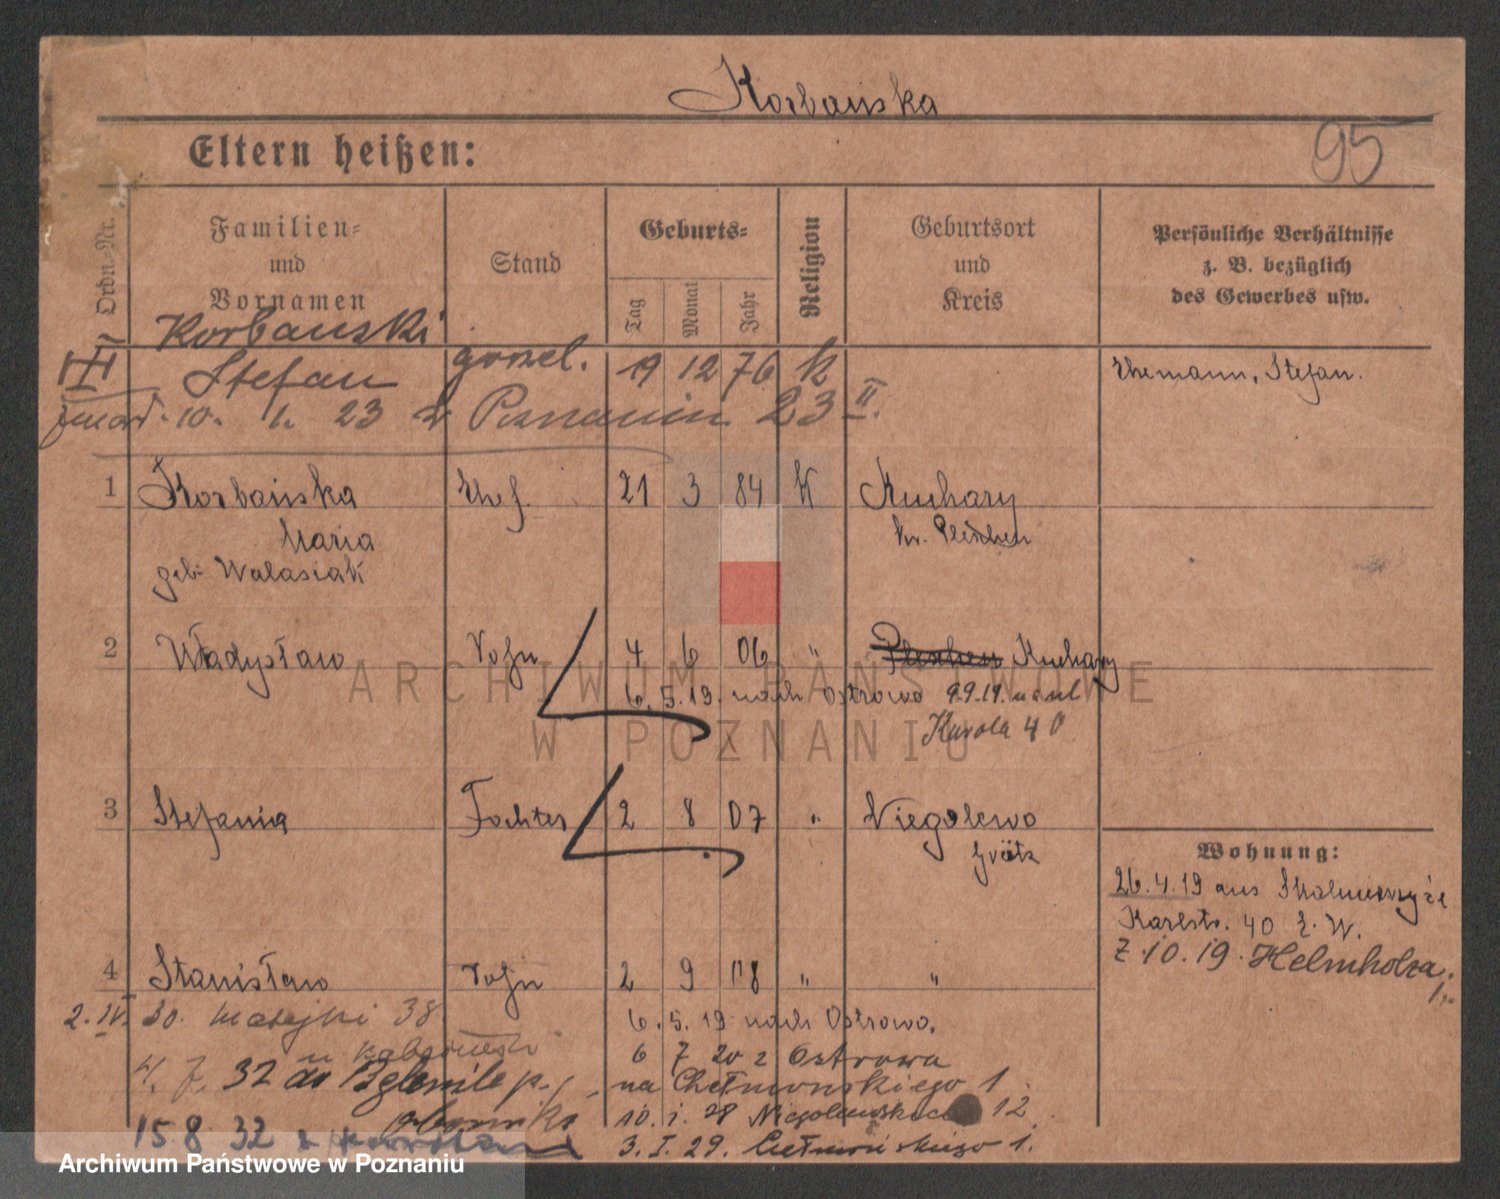 Korbańska
95
Eltern heißen:
Ordn.-Nr.
Familien-
und
Vornamen
Stand
Geburts-
Tag
Monat
Jahr
Religion
Geburtsort
und
Kreis
Persönliche Verhältnisse
z. B. bezüglich
des Gewerbes usw.
Korbanski
Stefan gorzel. 19 12 76 k
Ehemann, Stefan.
zmarł 10. 1. 23 w Poznaniu 23 II.
1 Korbańska Ehef. 21 3 84 K Kuchary
Maria kr. Pleschen
geb. Walasiak
2 Władysław Sohn 4 6 06 " Pleschen Kuchary
6. 5. 19. nach Ostrowo 9.9.19.
Karola 40
3 Stefania Tochter 2 8 07 " Niegolewo
Grätz
Wohnung:
26.4.19 aus Skalmierzyce
Karlstr. 40 E. W.
Z 10. 19. Helmholza
4 Stanisław Sohn 2 9 08 " "
2. IV. 30. Matejki 38
6. 5. 19 nach Ostrowo.
6 7 20 z Ostrowa
4. 7. 32 do
na Chełmonskiego 1.
Oborniki
10. 1. 28 Niegolewskich 12
15 8 32 z
3. I. 29. Chełmońskiego 1.
ARCHIWUM PAŃSTWOWE
W POZNANIU
Archiwum Państwowe w Poznaniu